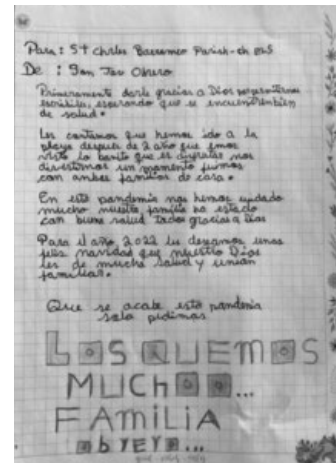 Para: St Chrles Barromeo Parish-ch
De : San Jose Obrero
Primeramente darle gracias a Dios
escribile, esperando que se encuentren bien
de salud.
Les contamos que hemos ido a la
playa despues de 2 año que emos
visto lo bonito que es disfrutar nos
divertimos un momento fuimos
con ambas familias de casa.
En esta pandemia nos hemos
mucho nuestra familia ha estado
con buena salud todos gracias a Dios
Para el año 2022 les deseamos unas
feliz navidad que nuestro Dios
les de mucha salud y unian
familiar.
Que se acabe esta pandemia
solo pedimos
LOS QUEMOS
MUCHOO...
FAMiLiA